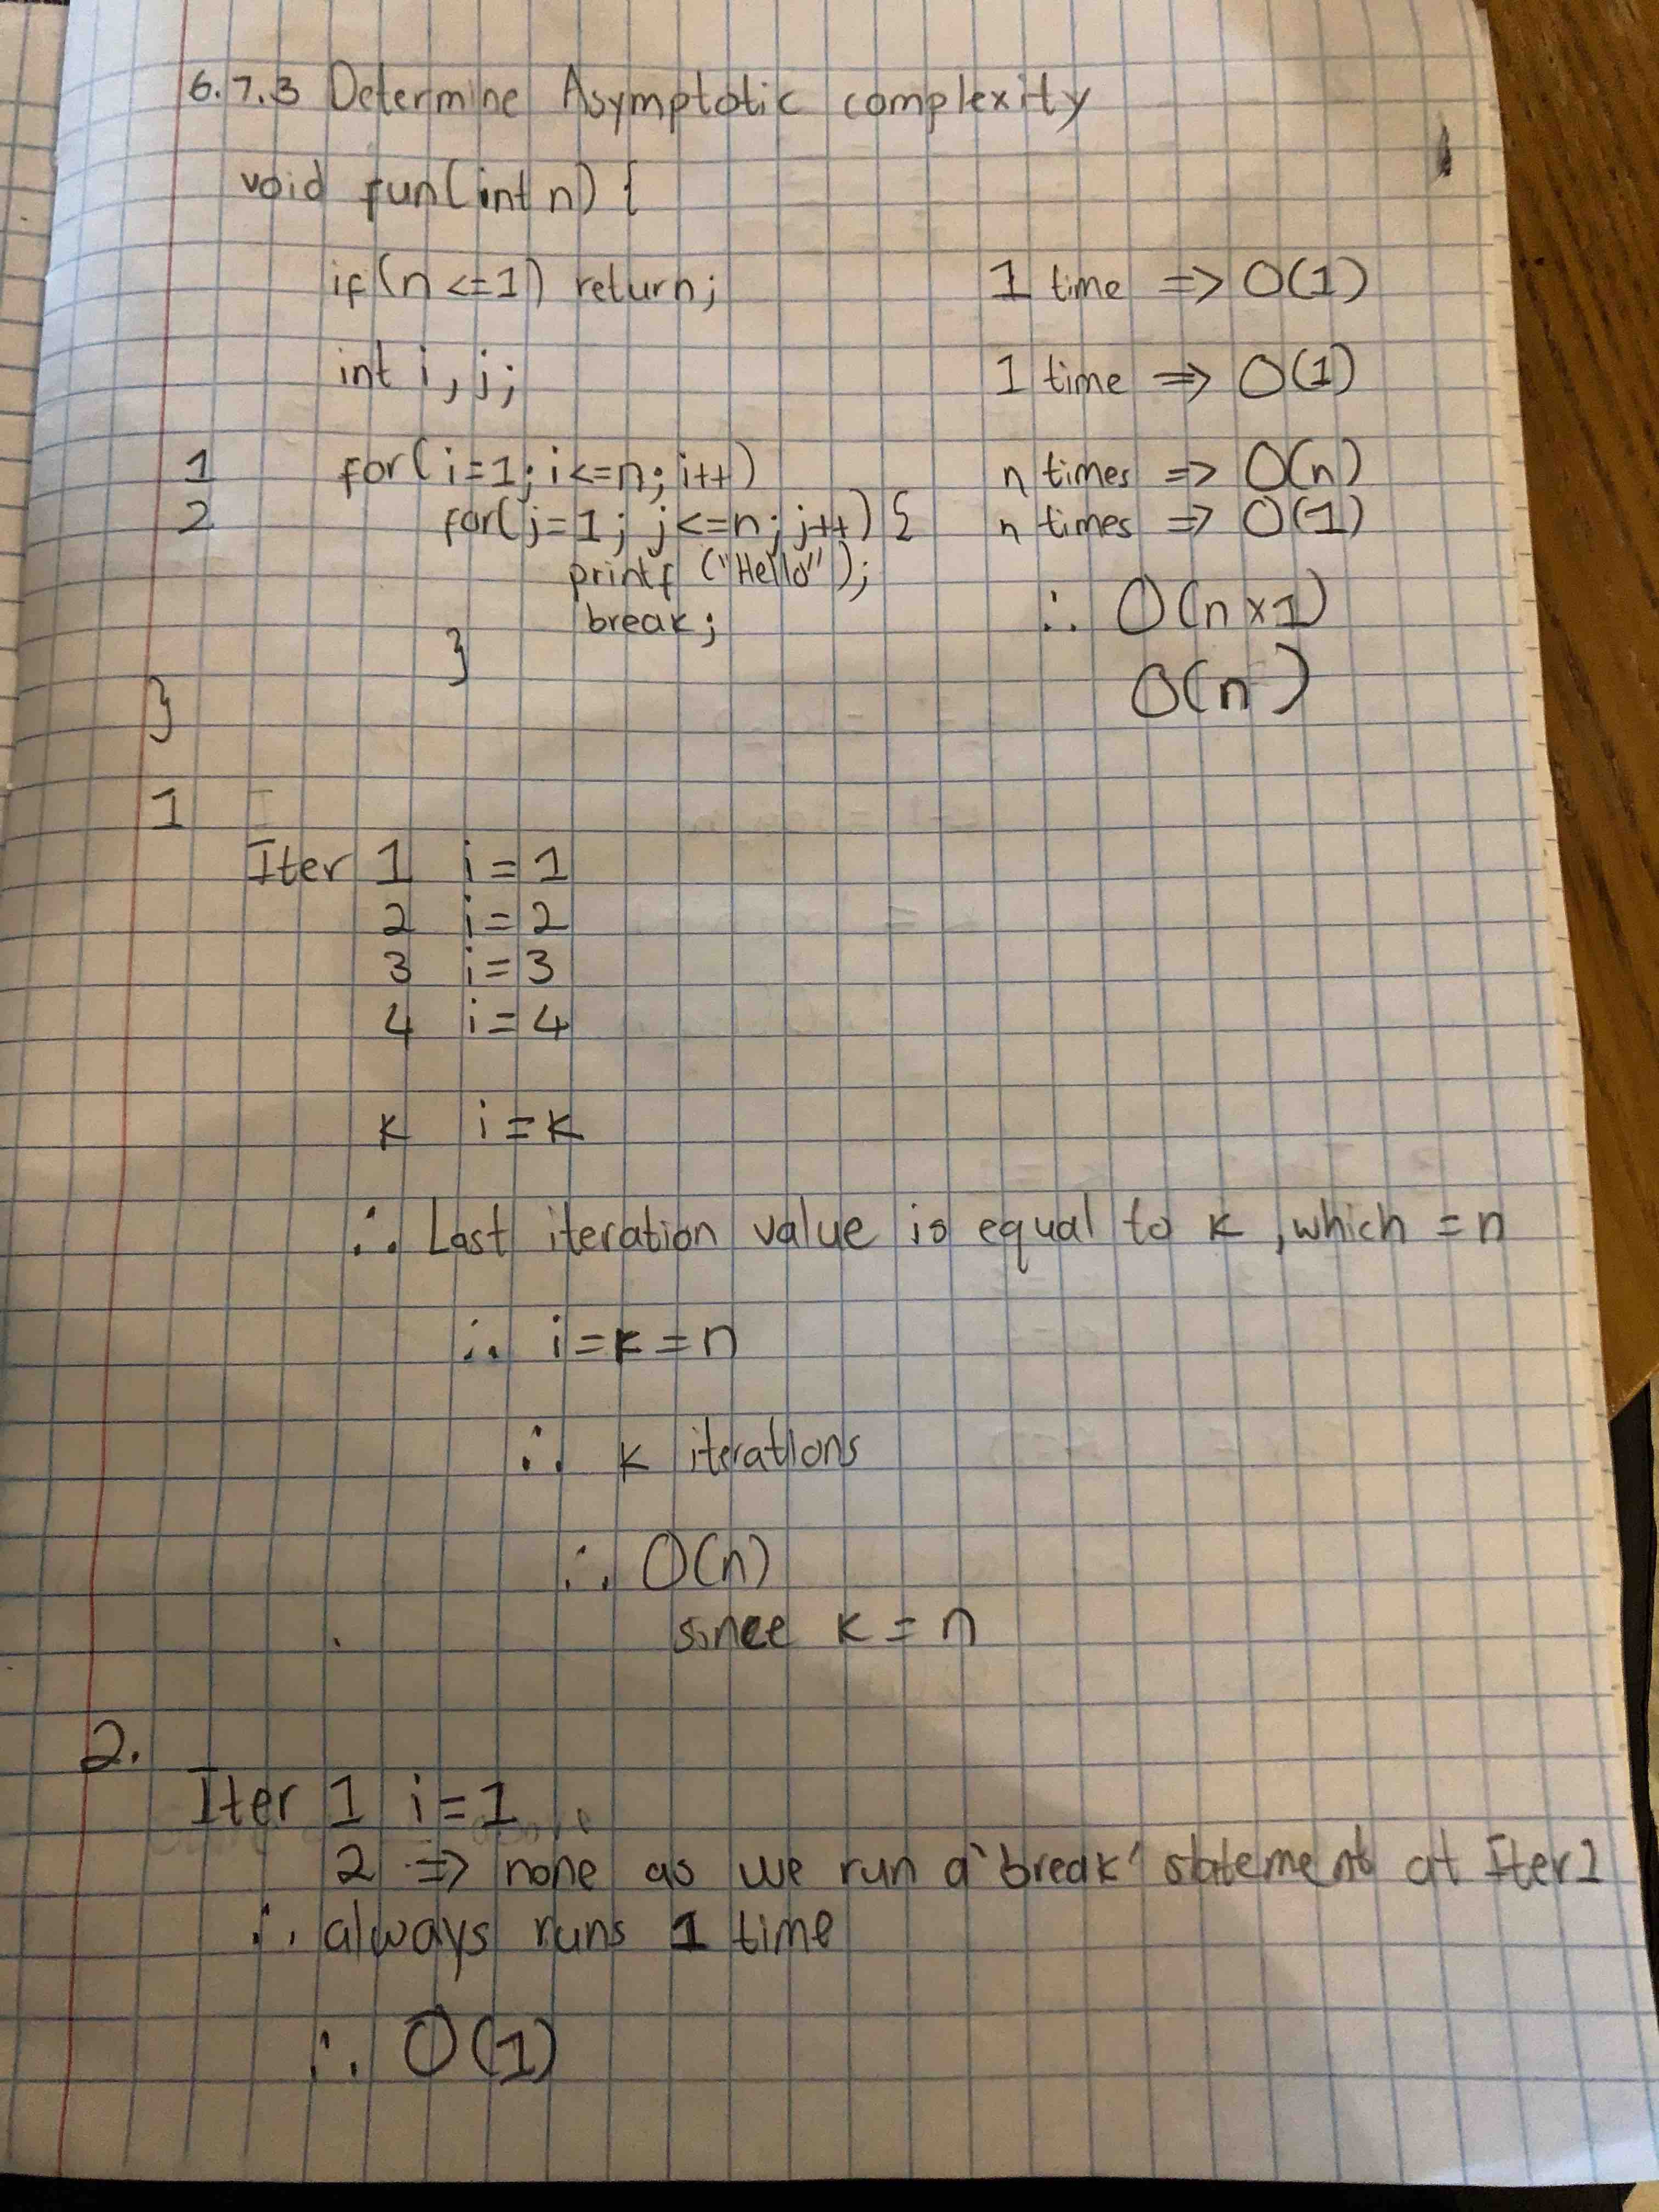 6.7.3 Determine Asymptotic complexity
void fun(int n) {
if(n <=1) return; 1 time => O(1)
int i, j; 1 time => O(1)
1 for(i=1; i<=n; i++) n times => O(n)
2 for(j=1; j<=n; j++) { n times => O(1)
printf ("Hello");
break; ∴ O(n x1)
} O(n)
}
1
Iter 1 i=1
2 i=2
3 i=3
4 i=4
k i=k
∴ Last iteration value is equal to k, which = n
∴ i=k=n
∴ k iterations
∴ O(n)
since k = n
2.
Iter 1 i=1
2 => none as we run a 'break' statement at Iter 1
∴ always runs 1 time
∴ O(1)